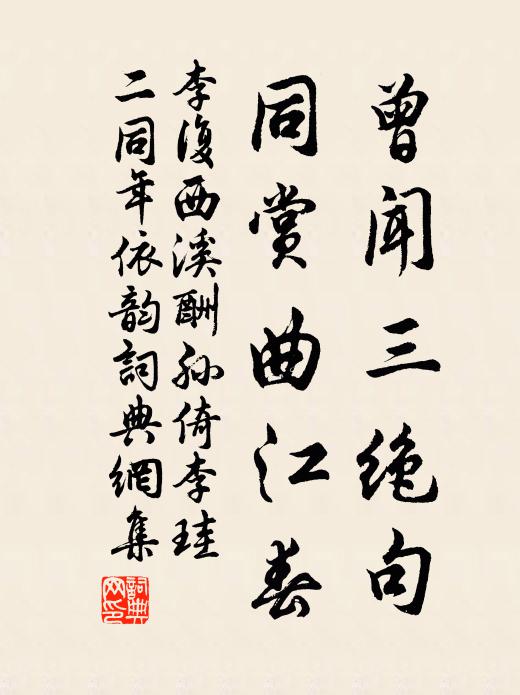 曾闻三绝句
同赏曲江春
李復西溪酬孙倚李珪
二同年依韵詞典網集
詞典網印